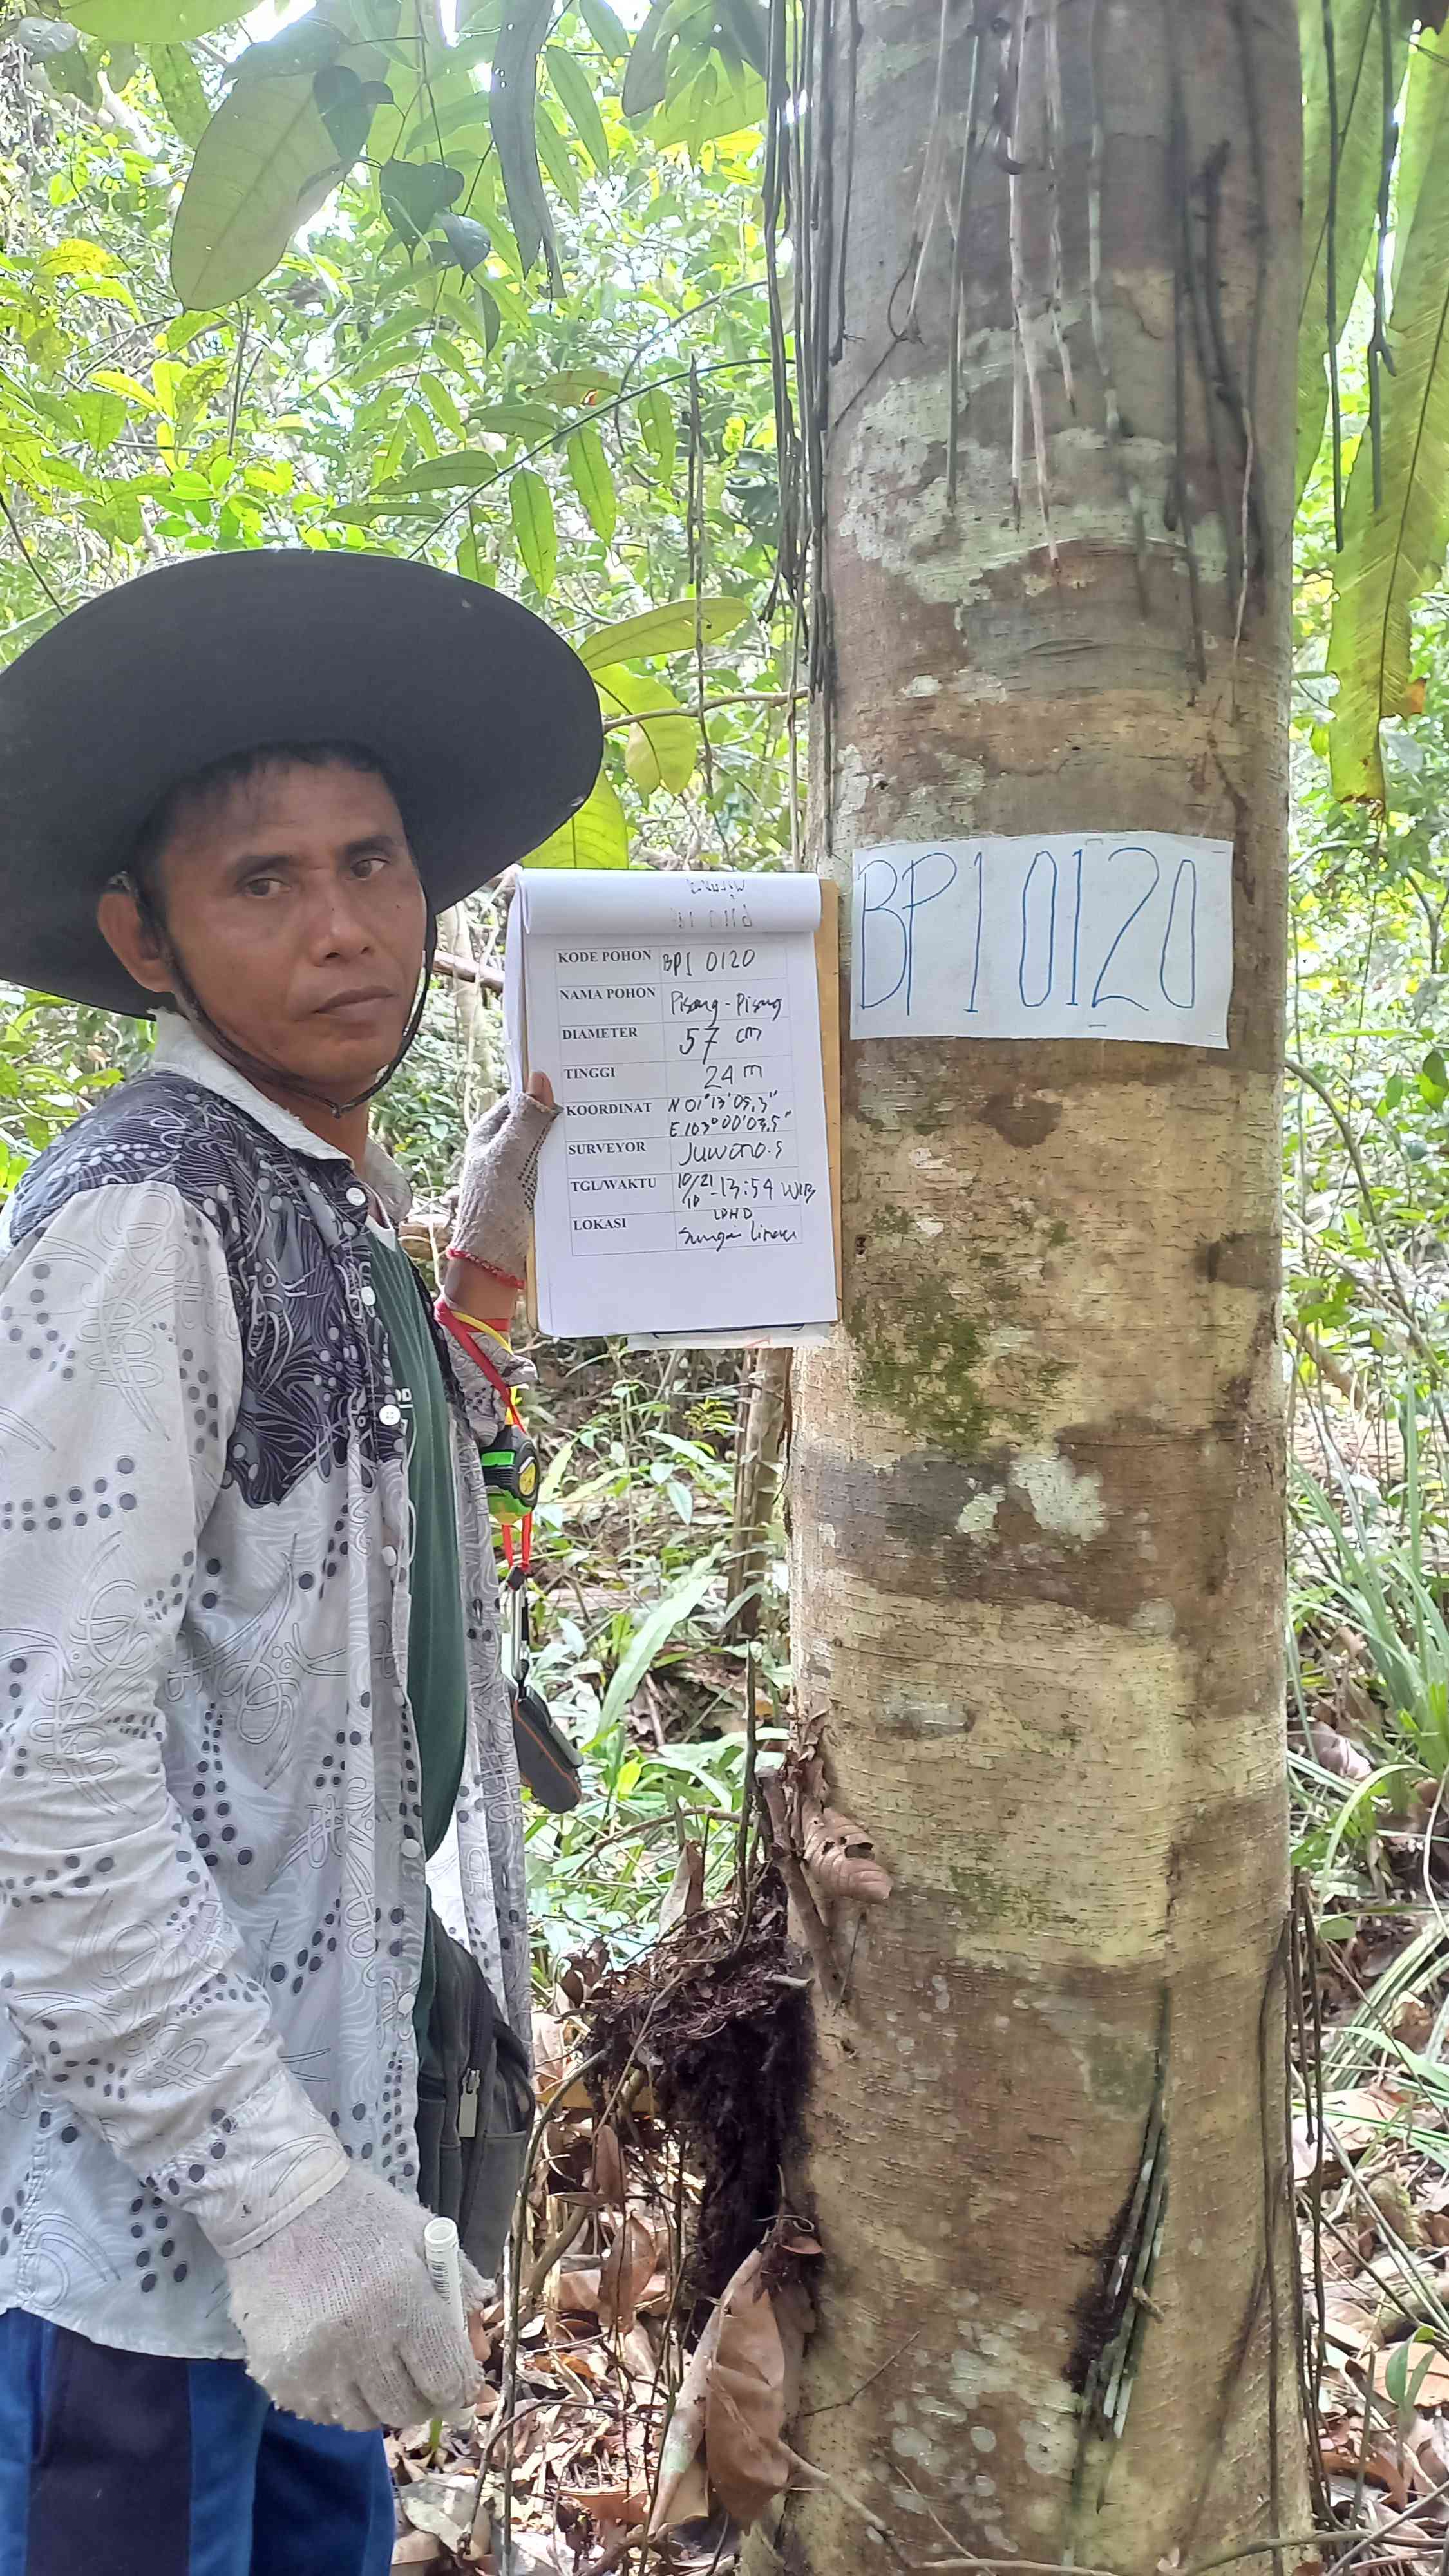 KODE POHON BPI 0120
NAMA POHON Pisang - Pisang
DIAMETER 57 cm
TINGGI 24 m
KOORDINAT N 01°13'09,3"
E 103°00'03,5"
SURVEYOR
TGL/WAKTU 10/21/10 - 13:54 WIB
LOKASI LDHD
Sungai
BPI 0120